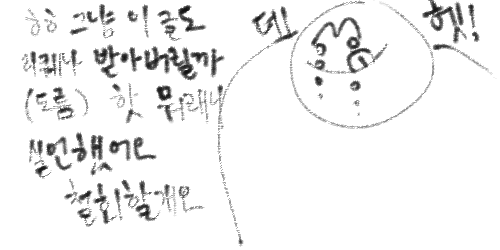 하하 그냥 이 글도
의뢰나 받아버릴까
(도롬) 핫 뭐래니
실언했어요
철회할게요
데헷!